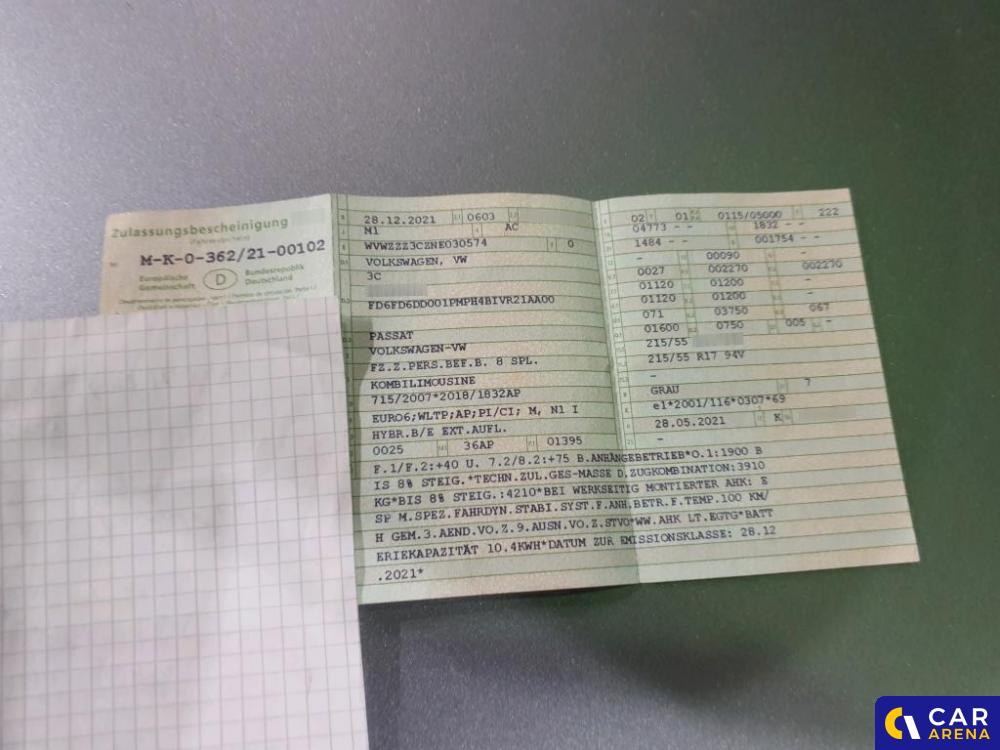 Zulassungsbescheinigung
(Fahrzeugschein)
M-K-0-362/21-00102
Europäische
Gemeinschaft
D
Bundesrepublik
Deutschland
28.12.2021 0603
M1 AC
WVWZZZ3CZNE030574 0
VOLKSWAGEN, VW
3C
FD6FD6DD001PMPH4BIVR21AA00
PASSAT
VOLKSWAGEN-VW
FZ.Z.PERS.BEF.B. 8 SPL.
KOMBILIMOUSINE
715/2007*2018/1832AP
EURO6;WLTP;AP;PI/CI; M, N1 I
HYBR.B/E EXT.AUFL.
0025 36AP 01395
F.1/F.2:+40 U. 7.2/8.2:+75 B.ANHÄNGEBETRIEB*O.1:1900 B
IS 8% STEIG.*TECHN.ZUL.GES-MASSE D.ZUGKOMBINATION:3910
KG*BIS 8% STEIG.:4210*BEI WERKSEITIG MONTIERTER AHK: E
SP M.SPEZ.FAHRDYN.STABI.SYST.F.ANH.BETR.F.TEMP.100 KM/
H GEM.3.AEND.VO.Z.9.AUSN.VO.Z.STVO*WW.AHK LT.EGTG*BATT
ERIEKAPAZITÄT 10.4KWH*DATUM ZUR EMISSIONSKLASSE: 28.12
.2021*
02 01 0115/05000 222
04773 - - 1832 - -
1484 - - 001754 - -
- 00090 -
0027 002270 002270
01120 01200 -
01120 01200 -
071 03750 067
01600 0750 005 -
215/55
215/55 R17 94V
-
GRAU 7
e1*2001/116*0307*69
28.05.2021 K
-
CAR
ARENA